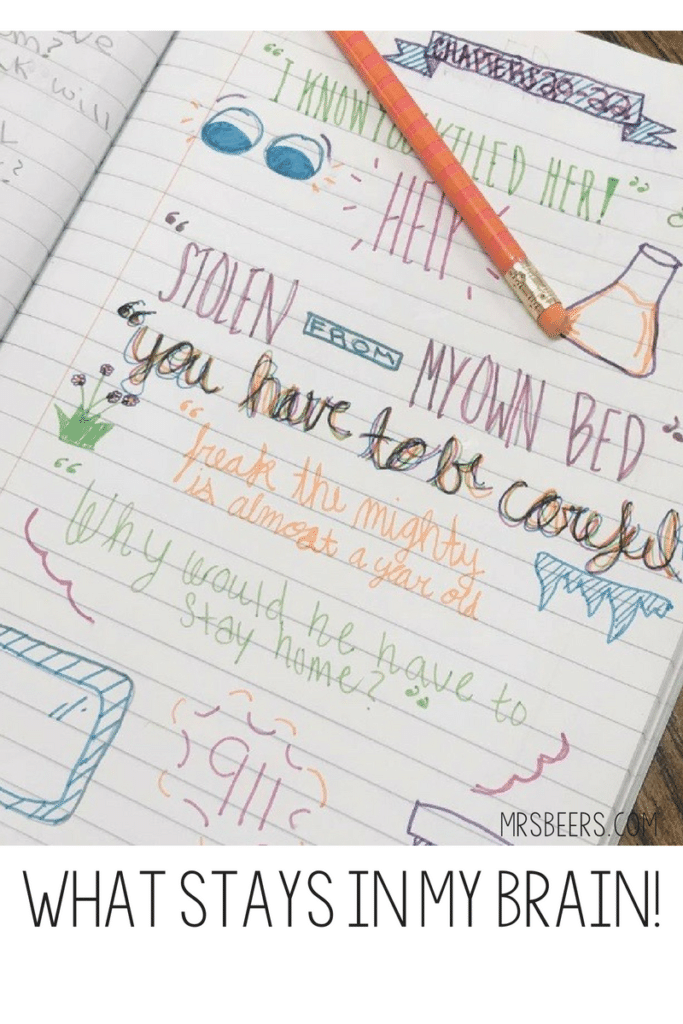 CHAPTERS 20-22!
"I KNOW YOU KILLED HER!"
HELP
"STOLEN FROM MY OWN BED"
"you have to be careful
"freak the mighty
is almost a year old
"Why would he have to
stay home?"
911
MRSBEERS.COM
WHAT STAYS IN MY BRAIN!